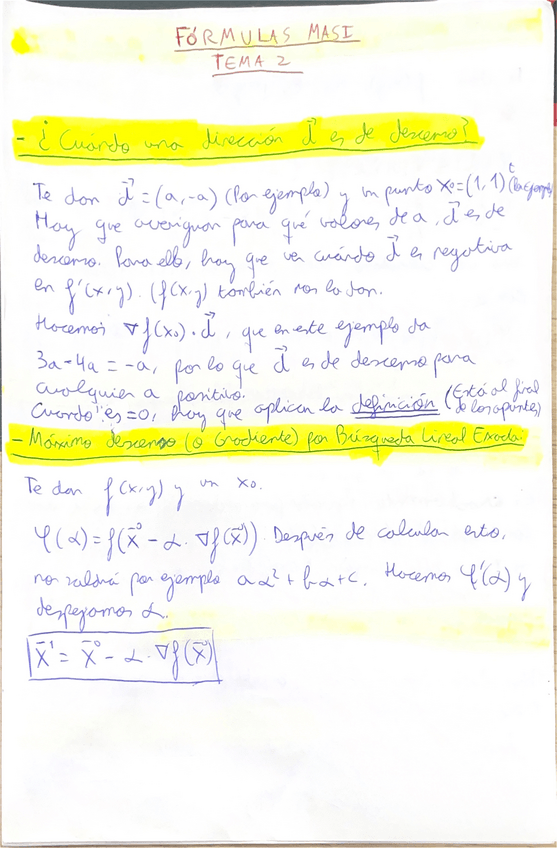 FÓRMULAS MASI
TEMA 2
- ¿Cuándo una dirección d⃗ es de descenso?
Te dan d⃗ = (a, -a) (Por ejemplo) y un punto x⁰ = (1, 1)ᵗ (Por ejemplo)
Hay que averiguar para qué valores de a, d⃗ es de
descenso. Para ello, hay que ver cuándo d⃗ es negativa
en f'(x,y). (f(x,y) también nos lo dan.
Hacemos ∇f(x₀)·d⃗, que en este ejemplo da
3a-4a = -a, por lo que d⃗ es de descenso para
cualquier a positivo.
Cuando es = 0, hay que aplicar la definición (Está al final de los apuntes)
- Máximo descenso (o Gradiente) por Búsqueda Lineal Exacta:
Te dan f(x,y) y un x₀.
φ(α) = f(x̄⁰ - α · ∇f(x̄⁰)). Después de calcular esto,
nos saldrá por ejemplo aα² + bα + c. Hacemos φ'(α) y
despejamos α.
x̄¹ = x̄⁰ - α · ∇f(x̄⁰)